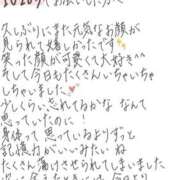 久しぶりにまた元気なお顔が
見られて嬉しかったです
笑った顔が可愛くて大好き^^
そして今日もたくさんいちゃいちゃ
しちゃいました
少しくらい忘れてるかな なんて
思っていたのに
身体って思っているよりずっと
記憶力がいいみたい ね
たくさん蕩けさせられてしまいました